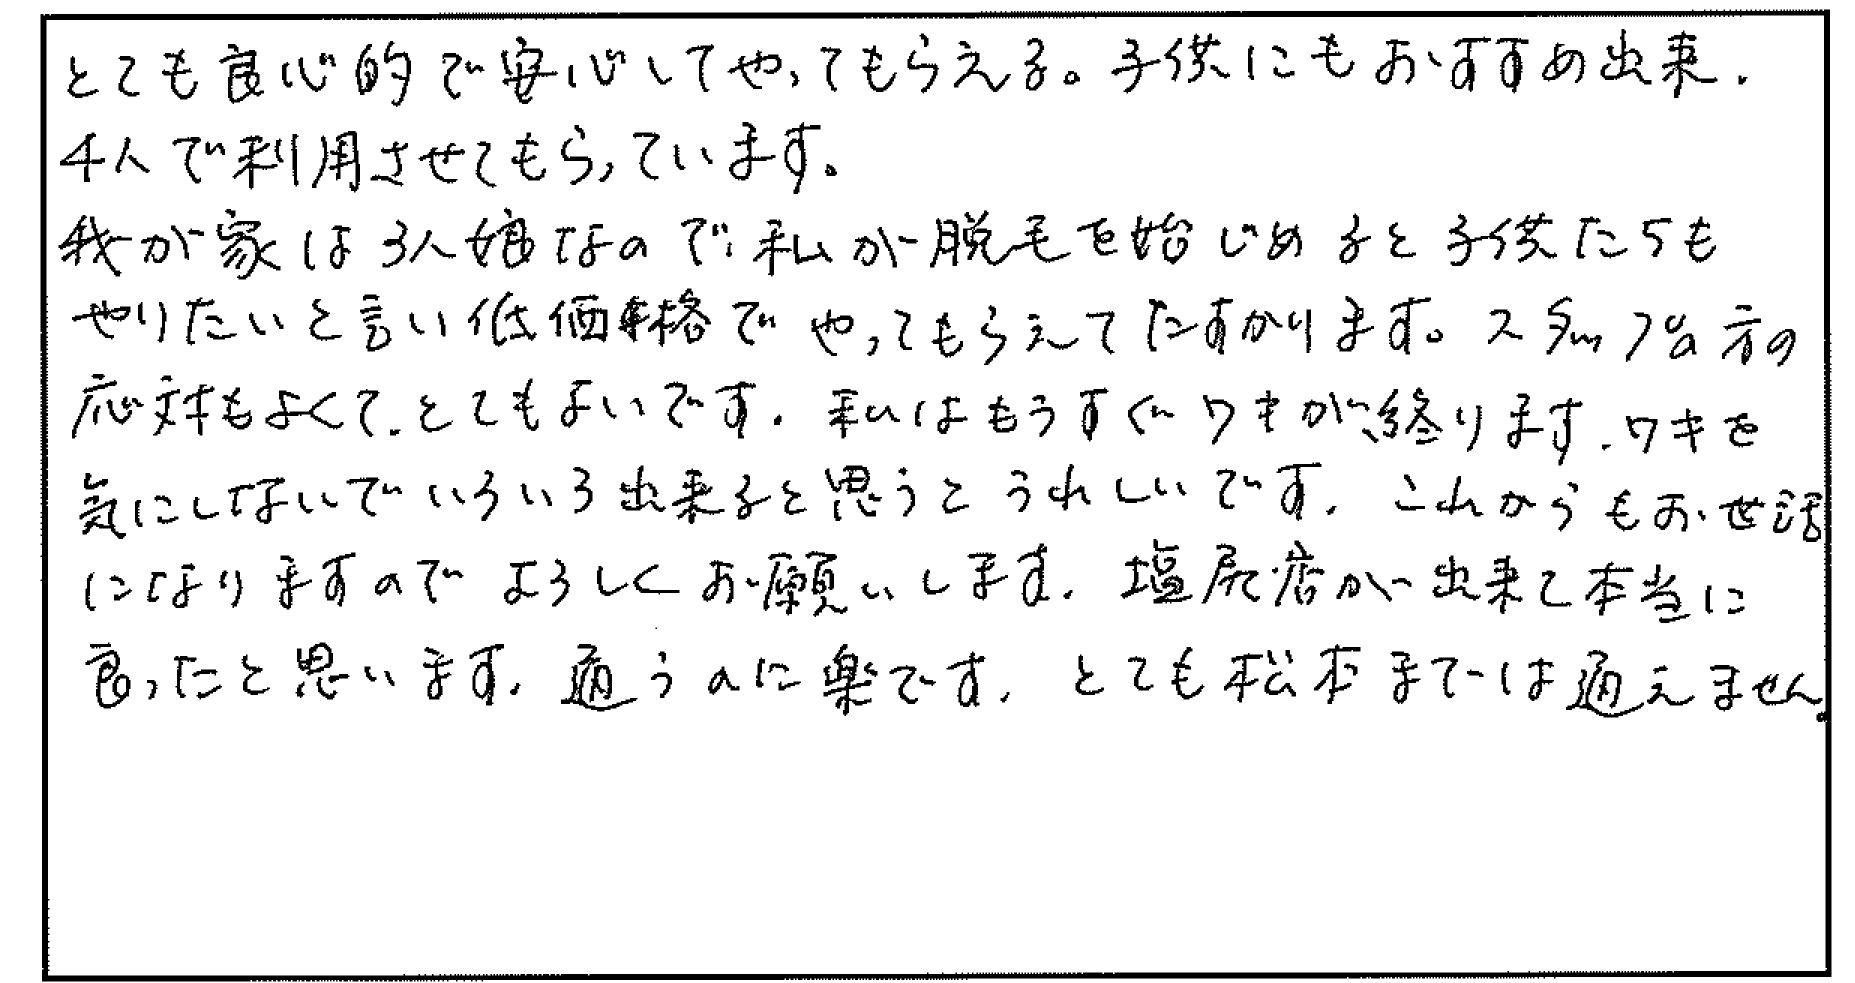 とても良心的で安心してやってもらえる。子供にもおすすめ出来、
4人で利用させてもらっています。
我が家は3人娘なので、私が脱毛を始じめると子供たちも
やりたいと言い低価格でやってもらえてたすかります。スタッフの方の
応対もよくて、とてもよいです。私はもうすぐワキが終ります。ワキを
気にしないでいろいろ出来ると思うとうれしいです。これからもお世話
になりますのでよろしくお願いします。塩尻店が出来て本当に
良ったと思います。通うのに楽です。とても松本までは通えません。